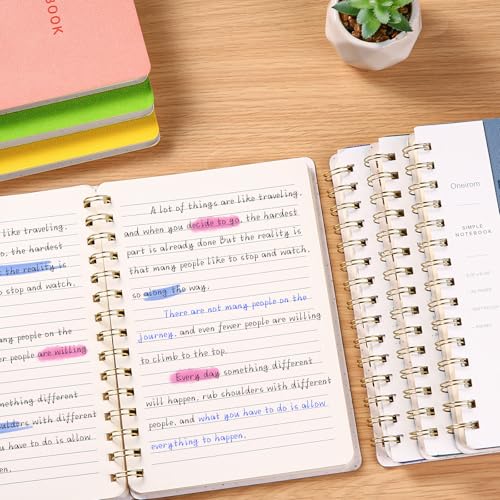 BOOK
like traveling,
go, the hardest
the reality is
stop and watch,
many people on the
er people are willing
mething different
ulders with different
you have to do is allow
en.
A lot of things are like traveling,
and when you decide to go, the hardest
part is already done But the reality is
that many people like to stop and watch,
so along the way,
There are not many people on the
journey, and even fewer people are willing
to climb to the top.
Every day something different
will happen, rub shoulders with different
people, and what you have to do is allow
everything to happen.
Oneirom
SIMPLE
NOTEBOOK